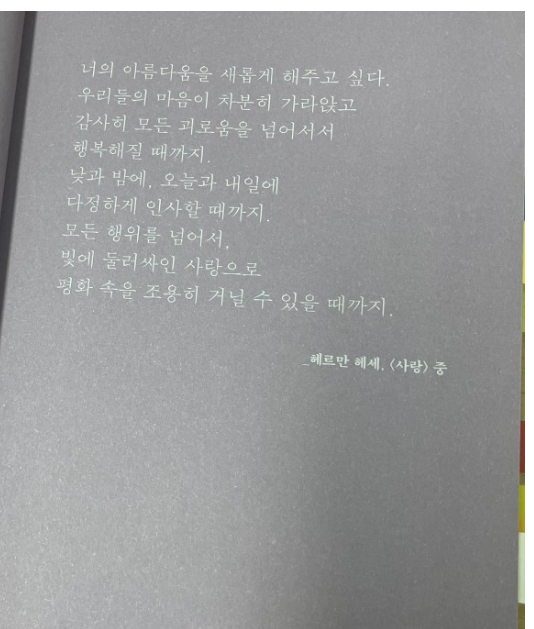 너의 아름다움을 새롭게 해주고 싶다.
우리들의 마음이 차분히 가라앉고
감사히 모든 괴로움을 넘어서서
행복해질 때까지.
낮과 밤에, 오늘과 내일에
다정하게 인사할 때까지.
모든 행위를 넘어서,
빛에 둘러싸인 사랑으로
평화 속을 조용히 거닐 수 있을 때까지.
_헤르만 헤세, 〈사랑〉 중